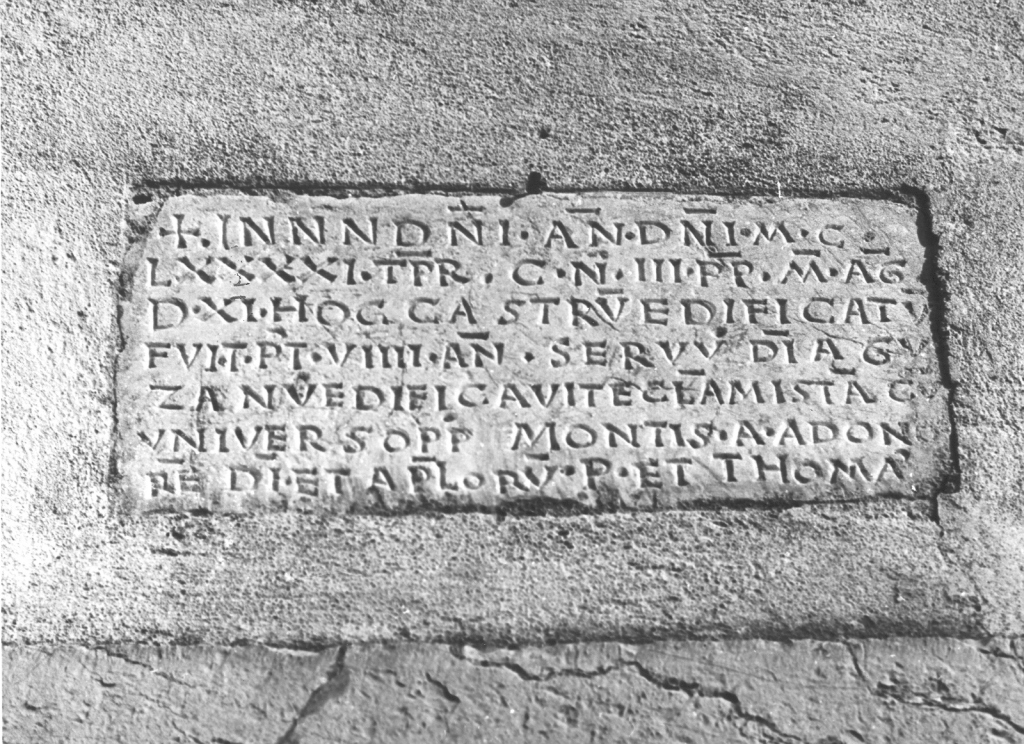 +. INNNN DÑI · AÑ · DÑI · M · C ·
LXXXXI · TPR · C · N̄ · IIII · PP · M̄ · AG
D · XI · HOC CASTRV̄ EDIFICATV
FVIT · PT · VIIII · AÑ · SERVV D̄I AGV
ZANVEDIFICAVITECLAMISTAC
VNIVERSOPP MONTIS · A · ADON
RE D̄I · ET APLORV̄ · P · ET THOMA